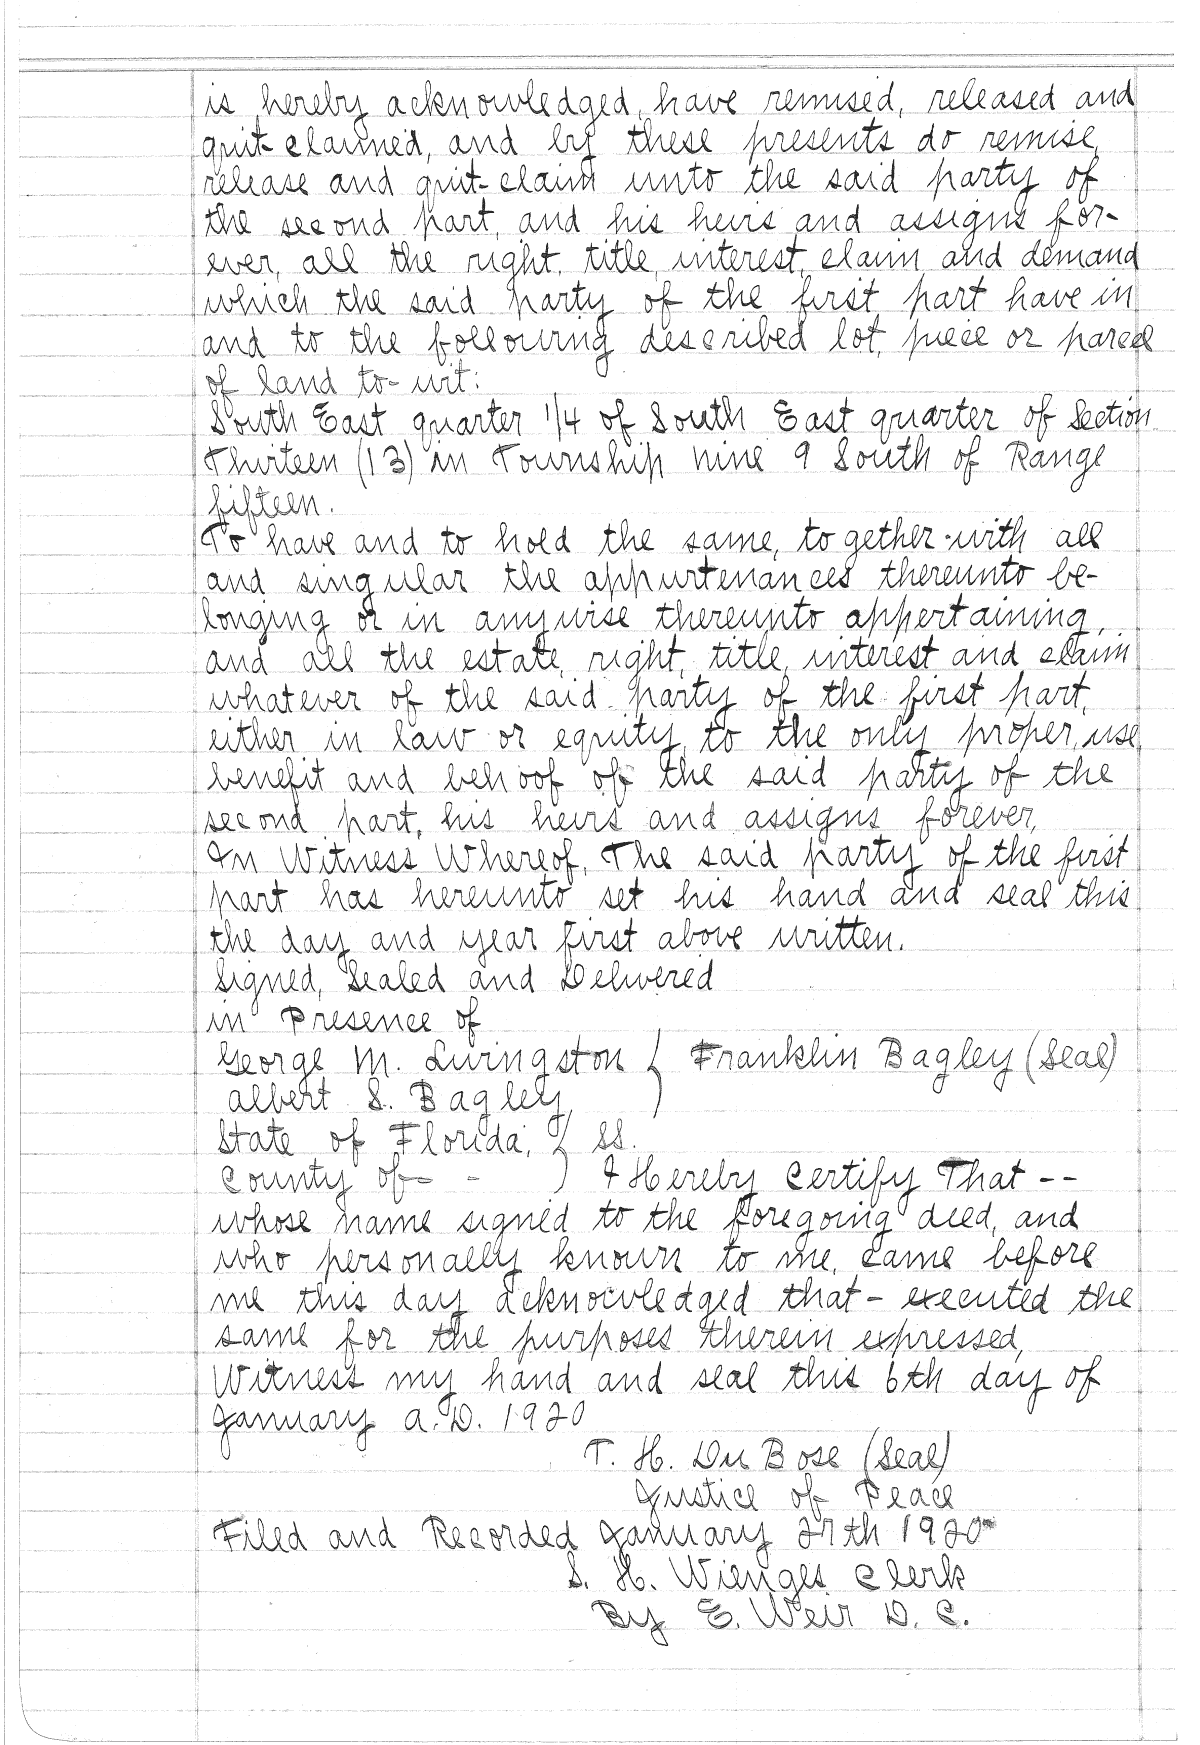 is hereby acknowledged, have remised, released and
quit-claimed, and by these presents do remise,
release and quit-claim unto the said party of
the second part, and his heirs and assigns for-
ever, all the right, title, interest, claim, and demand
which the said party of the first part have in
and to the following described lot, piece or parcel
of land to-wit:
South East quarter 1/4 of South East quarter of Section
Thirteen (13) in Township nine 9 South of Range
fifteen.
To have and to hold the same, together with all
and singular the appurtenances thereunto be-
longing or in anywise thereunto appertaining,
and all the estate, right, title, interest and claim
whatever of the said party of the first part,
either in law or equity, to the only proper, use,
benefit and behoof of the said party of the
second part, his heirs and assigns forever,
In Witness Whereof, The said party of the first
part has hereunto set his hand and seal this
the day and year first above written.
Signed, Sealed and Delivered
in Presence of
George M. Livingston } Franklin Bagley (Seal)
Albert S. Bagley,
State of Florida, } SS.
County of - - ) I Hereby Certify That --
whose name signed to the foregoing deed, and
who personally known to me, came before
me this day acknowledged that - executed the
same for the purposes therein expressed,
Witness my hand and seal this 6th day of
January A.D. 1920
T. H. Du Bose (Seal)
Justice of Peace
Filed and Recorded January 27th 1920
S. H. Wienges Clerk
By E. Weir D. C.